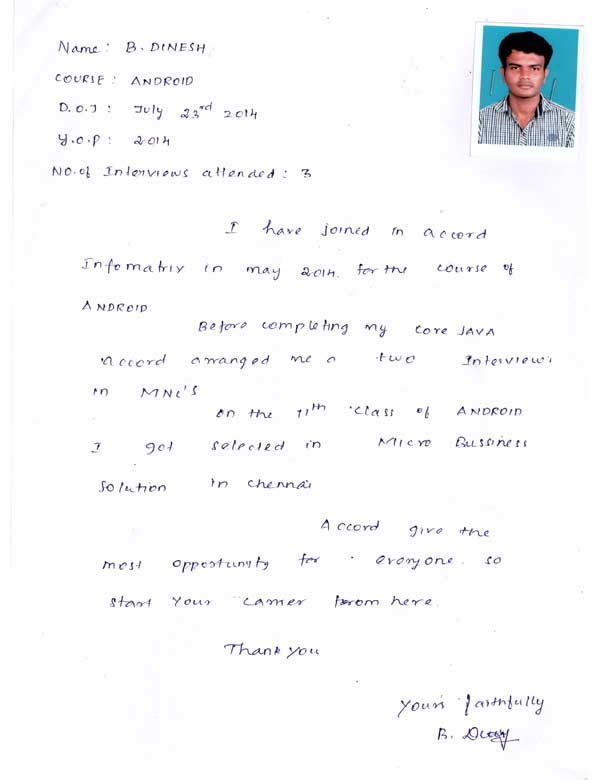 Name: B. DINESH
COURSE: ANDROID
D.O.J: July 23rd 2014
Y.O.P: 2014
NO. of Interviews attended: 3
I have joined in accord
Infomatrix in may 2014. for the course of
ANDROID
Before completing my core JAVA
Accord arranged me a two Interviews
in MNC'S
on the 11th class of ANDROID
I got selected in Micro Bussiness
solution in chennai
Accord give the
most opportunity for everyone. so
start your carrier from here.
Thank you
Yours faithfully
B.